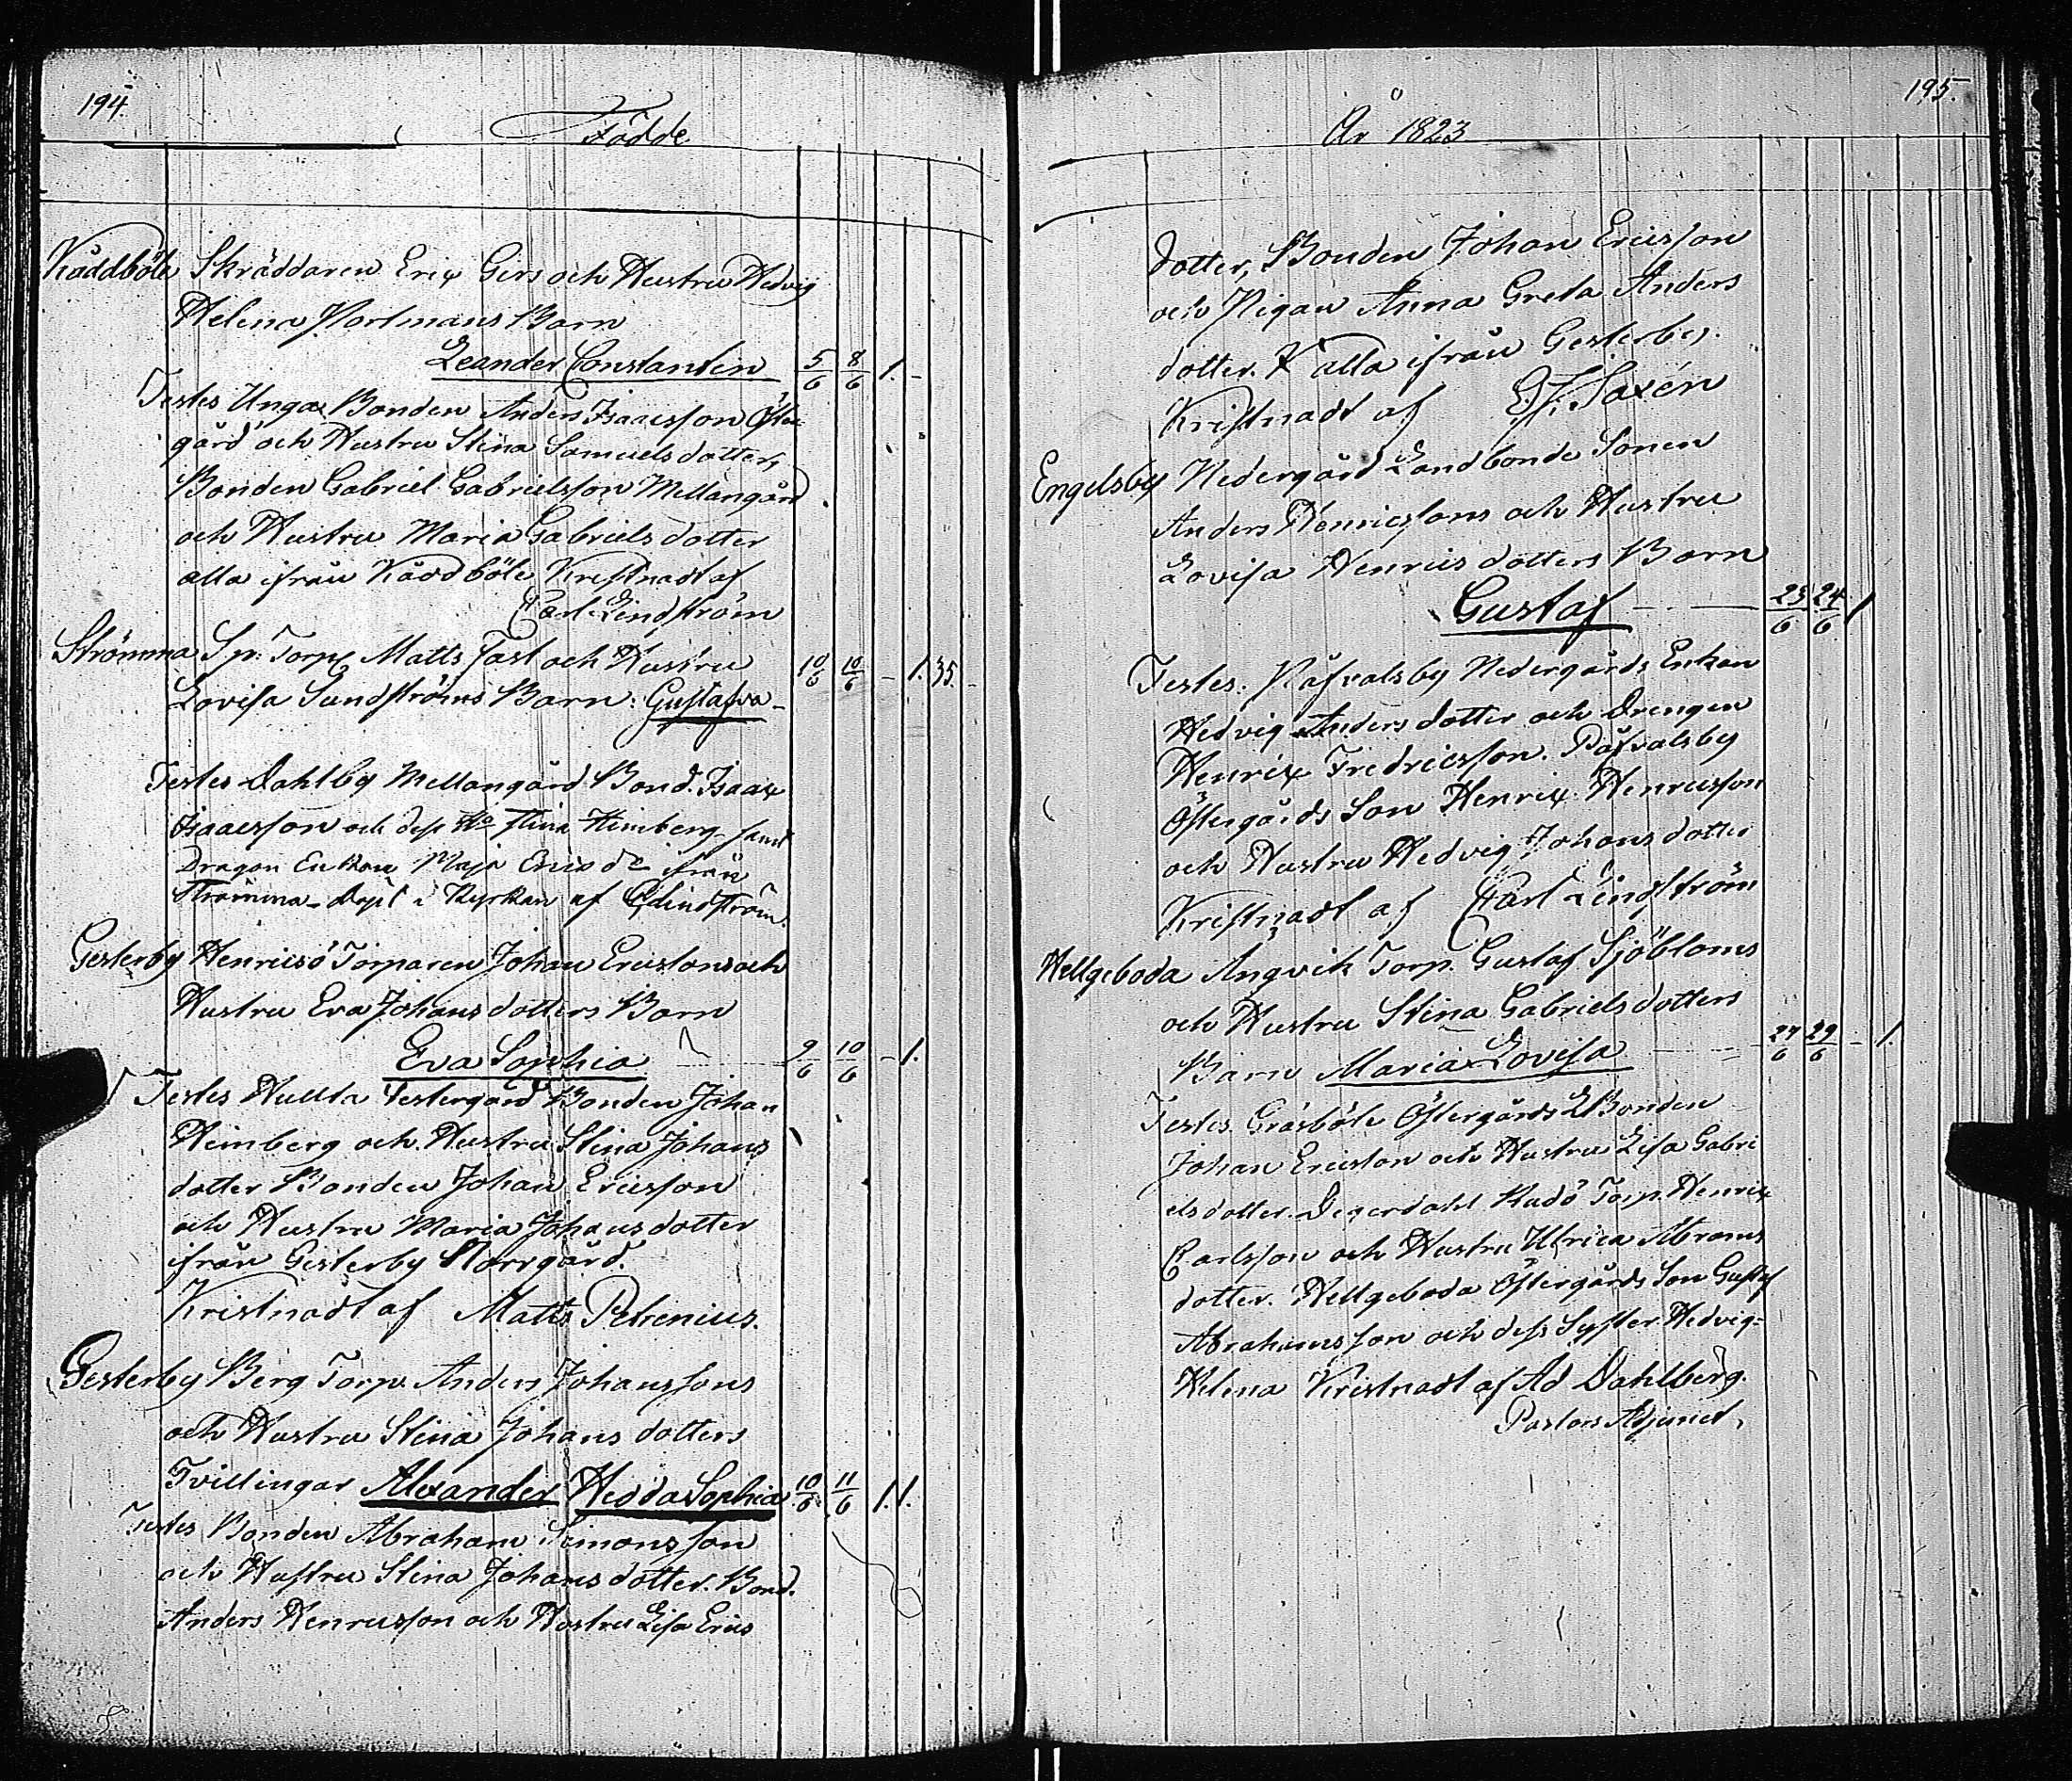 194.
Födde
Kåddböle Skräddaren Erix Girs och Hustru Hedvig
Helena Portmans Barn
Leander Constantin 5/6 8/6 1. -
Testes Unga Bonden Anders Isaacsson Öster
gård och Hustru Stina Samuels dotter,
Bonden Gabriel Gabrielsson Mellangård
och Hustru Maria Gabriels dotter
alla ifrån Kåddböle Kristnadt af
Carl Lindström
Strömma Sp: Torp Matts Fast och Hustru 10/6 10/6 - 1. 35.
Lovisa Sundströms Barn: Gustafva -
Testes Dahlby Mellangård Bond. Isaax
Isaacsson och dess Ho Stina Heimberg samt
Dragon Enkan Maja Erics dr ifrån
Strömma - Döpt i Kyrkan af CLindström.
Gesterby Henricsö Torparen Johan Ericsons och
Hustru Eva Johans dotters Barn
Eva Sophia 9/6 10/6 - 1.
Testes Hullta Vestergård Bonden Johan
Heimberg och Hustru Stina Johans
dotter Bonden Johan Ericsson
och Hustru Maria Johans dotter
ifrån Gesterby Norrgård.
Kristnadt af Matts Petrenius.
Gesterby Berg Torp. Anders Johanssons
och Hustru Stina Johans dotters
Tvillingar Alexander Hedda Sophia 10/6 11/6 1. 1.
Testes Bonden Abraham Simonsson
och Hustru Stina Johans dotter. Bond.
Anders Henricsson och Hustru Lisa Erics
195.
År 1823
dotter, Bonden Johan Ericsson
och Pigan Anna Greta Anders
dotter. alla ifrån Gesterby.
Kristnadt af Saxén
Engelsby Nedergård Landbonde Sonen
Anders Henricssons och Hustru
Lovisa Henrics dotters Barn
Gustaf 23/6 24/6 1
Testes. Påfvalsby Nedergårds Enkan
Hedvig Anders dotter och Drengen
Henrix Fredricsson. Påfvalsby
Östergårds Son Henrix Henricsson
och Hustru Hedvig Johans dotter
Kristnadt af Carl Lindström
Hellgeboda Angvik Torp. Gustaf Sjöbloms
och Hustru Stina Gabriels dotters
Barn Maria Lovisa 27/6 29/6 - 1.
Testes. Gräsböle Östergårds LBonden
Johan Ericsson och Hustru Lisa Gabri
els dotter. Degerdahl Rudö Torp. Henrix
Carlsson och Hustru Ulrica Abrams
dotter. Hellgeboda Östergårds Son Gustaf
Abrahamsson och dess Syster Hedvig
Helena Kristnadt af Ad Dahlberg.
Pastors Adjunct.